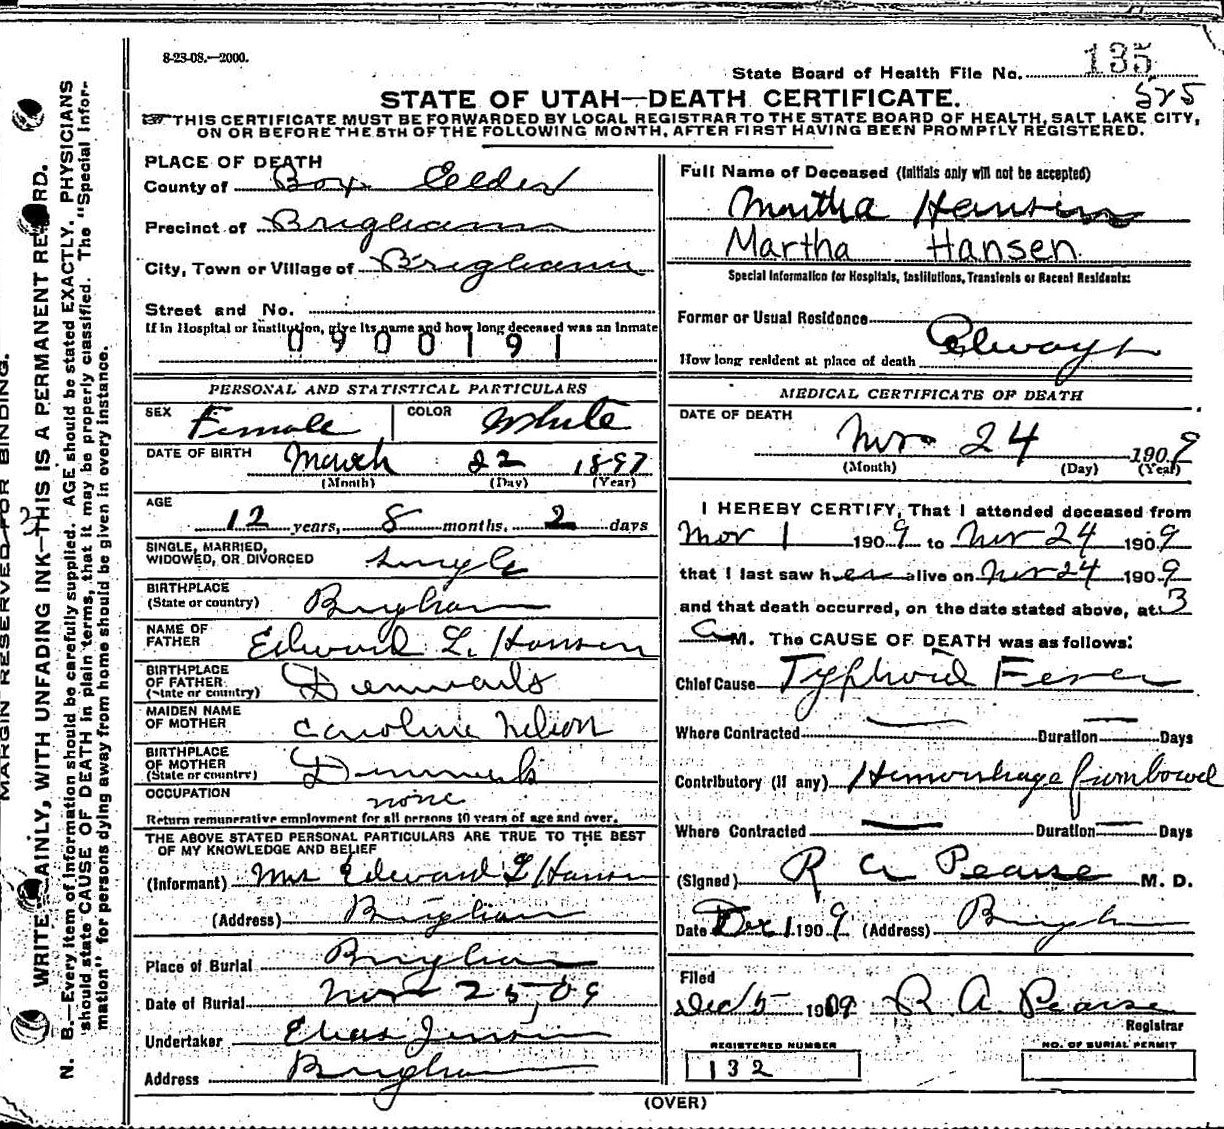 8-23-08.—2000.
135
State Board of Health File No.
525
STATE OF UTAH—DEATH CERTIFICATE.
THIS CERTIFICATE MUST BE FORWARDED BY LOCAL REGISTRAR TO THE STATE BOARD OF HEALTH, SALT LAKE CITY,
ON OR BEFORE THE 5TH OF THE FOLLOWING MONTH, AFTER FIRST HAVING BEEN PROMPTLY REGISTERED.
PLACE OF DEATH
County of Box Elder
Precinct of Brigham
City, Town or Village of Brigham
Street and No.
If in Hospital or Institution, give its name and how long deceased was an Inmate
0900191
PERSONAL AND STATISTICAL PARTICULARS
SEX Female COLOR White
DATE OF BIRTH March 22 1897
(Month) (Day) (Year)
AGE
12 years, 8 months, 2 days
SINGLE, MARRIED,
WIDOWED, OR DIVORCED Single
BIRTHPLACE
(State or country) Brigham
NAME OF
FATHER Edward L. Hansen
BIRTHPLACE
OF FATHER
(State or country) Denmark
MAIDEN NAME
OF MOTHER Caroline Nelson
BIRTHPLACE
OF MOTHER
(State or country) Denmark
OCCUPATION none
Return remunerative employment for all persons 10 years of age and over.
THE ABOVE STATED PERSONAL PARTICULARS ARE TRUE TO THE BEST
OF MY KNOWLEDGE AND BELIEF
(Informant) Mrs Edward L Hansen
(Address) Brigham
Place of Burial Brigham
Date of Burial Nov 25, 09
Undertaker Elias Jensen
Address Brigham
Full Name of Deceased (Initials only will not be accepted)
Martha Hansen
Martha Hansen
Special Information for Hospitals, Institutions, Transients or Recent Residents:
Former or Usual Residence
How long resident at place of death Always
MEDICAL CERTIFICATE OF DEATH
DATE OF DEATH
Nov 24 1909
(Month) (Day) (Year)
I HEREBY CERTIFY, That I attended deceased from
Nov 1 1909 to Nov 24 1909
that I last saw her alive on Nov 24 1909
and that death occurred, on the date stated above, at 3
A M. The CAUSE OF DEATH was as follows:
Chief Cause Typhoid Fever
Where Contracted — Duration — Days
Contributory (if any) Hemorrhage from bowel
Where Contracted — Duration — Days
(Signed) R A Pearse M. D.
Date Dec 1 1909 (Address) Brigham
Filed
Dec 5 1909 R A Pearse
Registrar
REGISTERED NUMBER
132
NO. OF BURIAL PERMIT
(OVER)
MARGIN RESERVED FOR BINDING.
WRITE PLAINLY, WITH UNFADING INK—THIS IS A PERMANENT RECORD.
N. B.—Every item of information should be carefully supplied. AGE should be stated EXACTLY. PHYSICIANS
should state CAUSE OF DEATH in plain terms, that it may be properly classified. The "Special Infor-
mation" for persons dying away from home should be given in every instance.